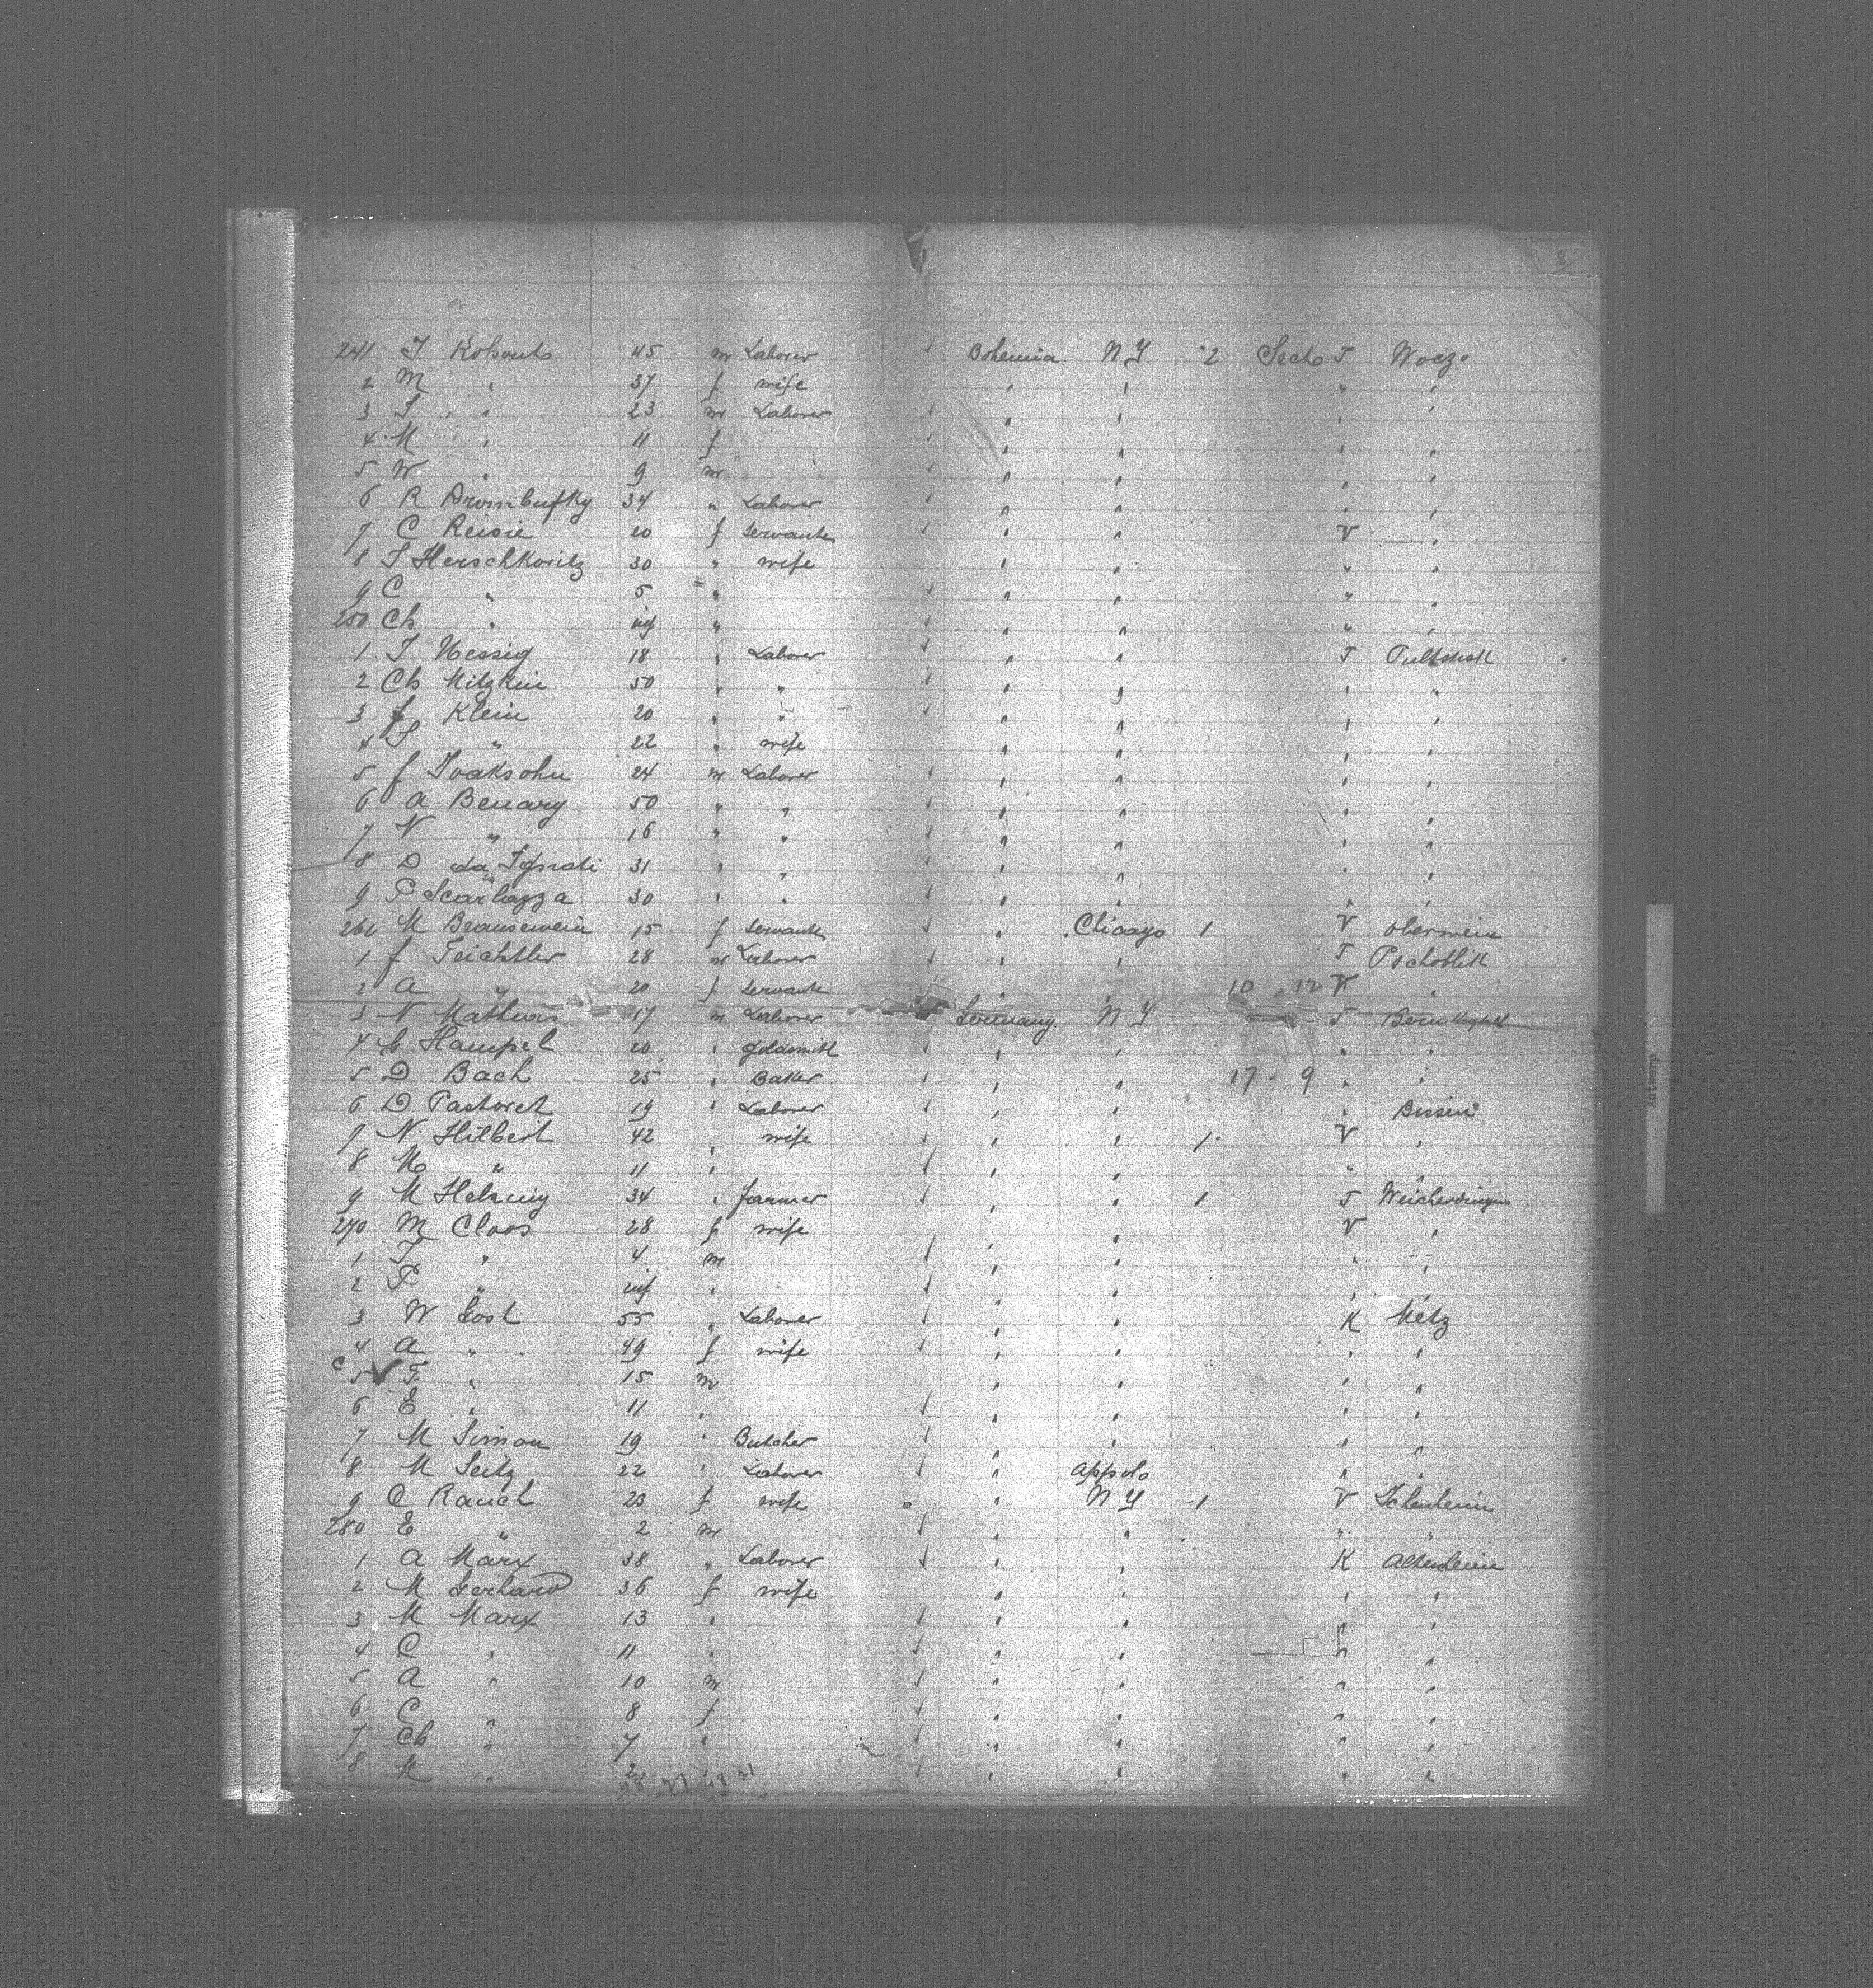 8
241 J Kohouts 45 m Laborer Bohemia NY 2 Secho J Woczo
2 M " 37 f wife " " " "
3 J " 23 m Laborer " " " "
4 M " 11 f " " " "
5 W " 9 m " " " "
6 R 34 " Laborer " " " "
7 C Reisie 20 f Servante " " V "
8 S Herschkovitz 30 " wife " " " "
9 C " 5 " " " " "
250 Ch " inf " " " " "
1 J Nessig 18 " Laborer " " J Pultousk
2 Ch Mitzkin 50 " " " " " "
3 f Klein 20 " " " " " "
4 S " 22 " wife " " " "
5 f Isaksohn 24 m Laborer " " " "
6 A Benary 50 " " " " " "
7 N " 16 " " " " " "
8 D La 31 " " " " " "
9 P Scarlazza 30 " " " " " "
260 M Brausewein 15 f Servante " Chicago 1 V oberwein
1 f Teichtler 28 m Laborer " " J Pschoblik
2 A " 20 f Servante " " 10 - 12 V "
3 N Mathias 17 m Laborer Germany NY J
4 G Hampel 20 " goldsmith " " " "
5 D Bach 25 " Baker " " 17 - 9 " "
6 D Pastoret 19 " Laborer " " " Bissen
7 N Hilbert 42 " wife " " 1 V "
8 M " 11 " " " " "
9 M Helsuig 34 " farmer " " 1 J Weicherdingen
270 M Cloos 28 f wife V "
1 J " 4 m " " " "
2 P " inf " " " " "
3 W Gost 55 " Laborer " " K Metz
4 A " 49 f wife " " " "
c 5 F " 15 m " " " "
6 E " 11 " " " " "
7 M Simon 19 " Butcher " " " "
8 M Seitz 22 " Laborer " Appolo " "
9 C Rauch 23 f wife " NY 1 V Ichenheim
280 E " 2 m " " " "
1 A Marx 38 " Laborer " " K Altenheim
2 M Gerhard 36 f wife " " " "
3 M Marx 13 " " " " "
4 C " 11 " " " " "
5 A " 10 m " " " "
6 C " 8 f " " " "
7 Ch " 7 " " " " "
8 M " " " " "
Antwerp